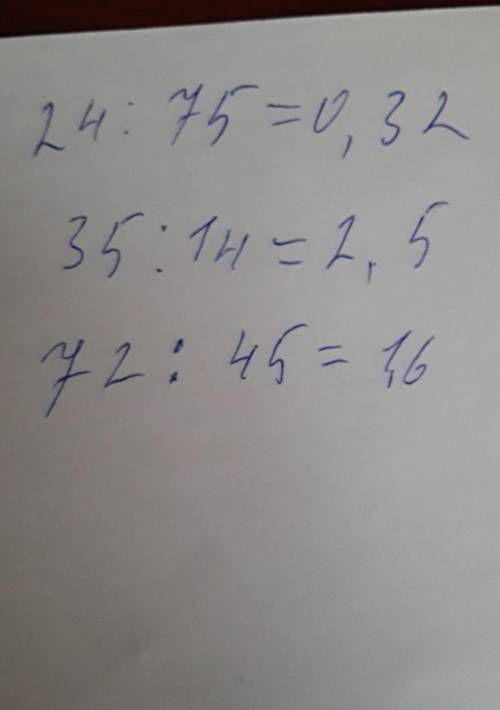 24: 75=0,32
35:14=2,5
72: 45=1,6